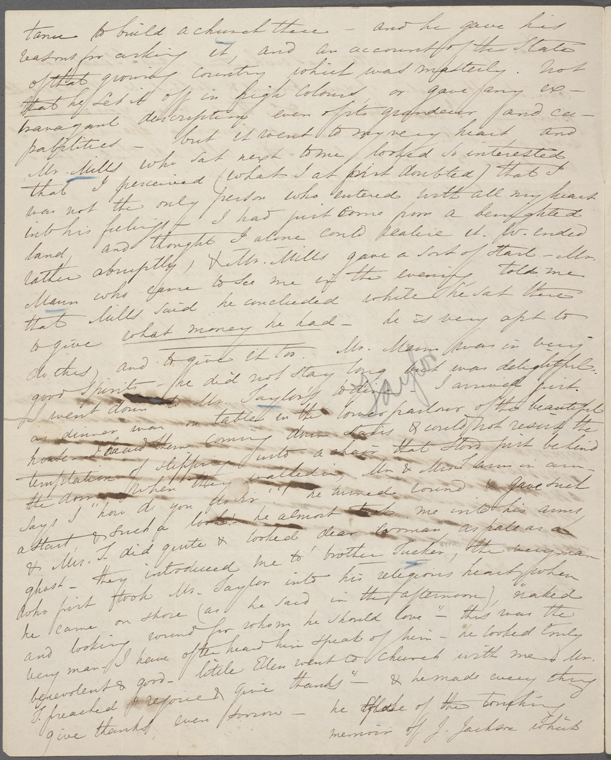 tance to build a church there - and he gave his
reasons for asking it, and an account of the State
of that growing country which was masterly. Not
that he set it off in high colours, or gave any ex-
travagant description even of its grandeur, (and ca-
pabilities - but it went to my very heart and
Mr. Mills who sat next to me, looked so interested
that I perceived (what I at first doubted) that I
was not the only person who entered with all my heart
into his feelings - I had just come from a benighted
land, and thought I alone could realise it. W. ended
rather abruptly, & Mr. Mills gave a sort of start - Mr.
Mann who came to see me in the evening told me
that Mills said he concluded while he sat there
to give what money he had - he is very apt to
do this, and to give it too. Mr. Mann was in very
good spirits - he did not stay long but was delightful.
I went down to Mr. Taylor's I arrived just
Taylor
as dinner was on table in the lower parlour of the beautiful
house & heard them coming down & could not resist the
temptation of slipping into a chair that stood just behind
the door when they walked in Mr & Mrs arm in arm
says I "how do you do" he turned round & gave such
a start & such a he almost took me into his arms
& Mrs. T. did quite & looked dear woman as pale as a
ghost - they introduced me to brother the very man
who first took Mr. Taylor into his religious heart, when
he came on shore (as he said in the afternoon), naked
and looking round for whom he should love" - this was the
very man I have often heard him speak of him - he looked truly
benevolent & good - little Ellen went to Church with me - Mr.
T. preached "rejoice & give thanks" - & he made every thing
give thanks, even sorrow - he spoke of the touching
memoir of J. Jackson which